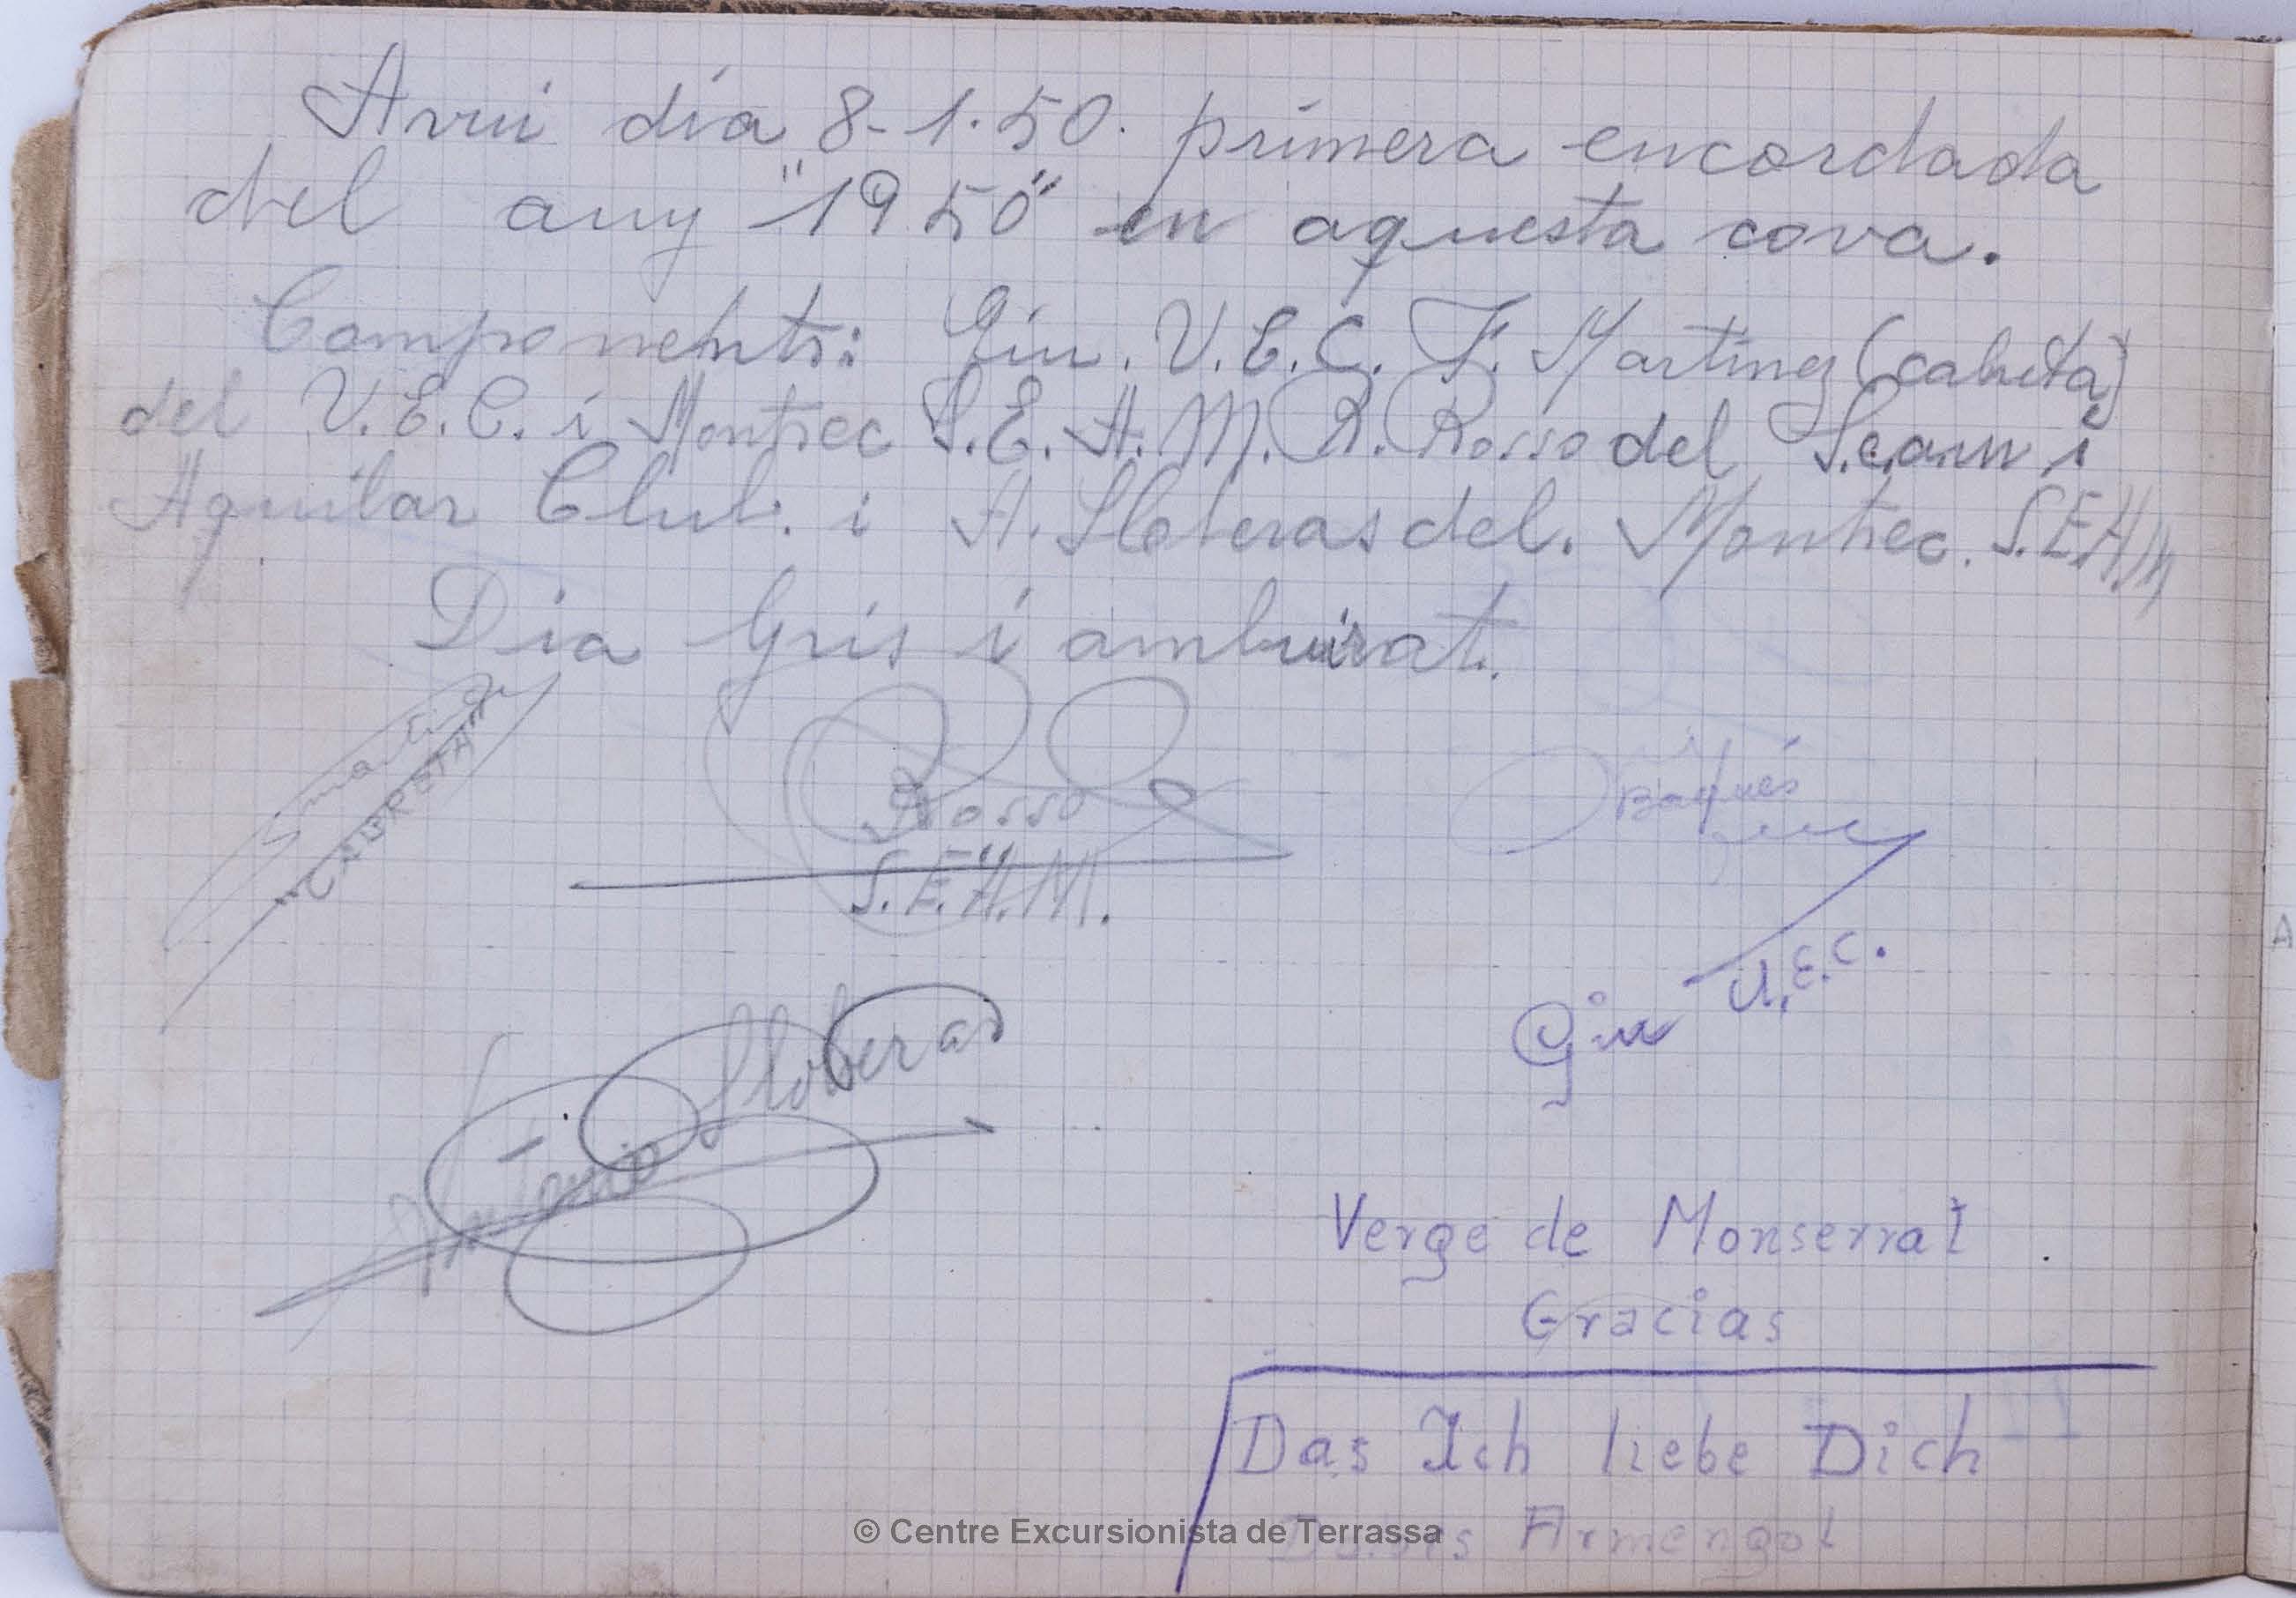 Avui día 8-1.50. primera encordada
del any "1950" en aquesta cova.
Components: Giu. U.E.C. F. Martinez (cabreta)
del U.E.C. i Montsec S.E.A.M. R. Rosso del S.e.a.m i
Aguilar Club. i A. Lloberas del. Montsec. S.E.A.M
Dia Gris i amb
"CABRETA"
Rosso
S.E.A.M.
Baqués
U.E.C.
Giu
Antonio Lloberas
Verge de Monserrat
Gracias
Das Ich liebe Dich
Armengol
© Centre Excursionista de Terrassa